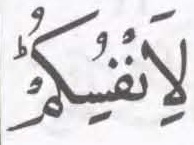 لِاَنْفُسِكُمْؕ